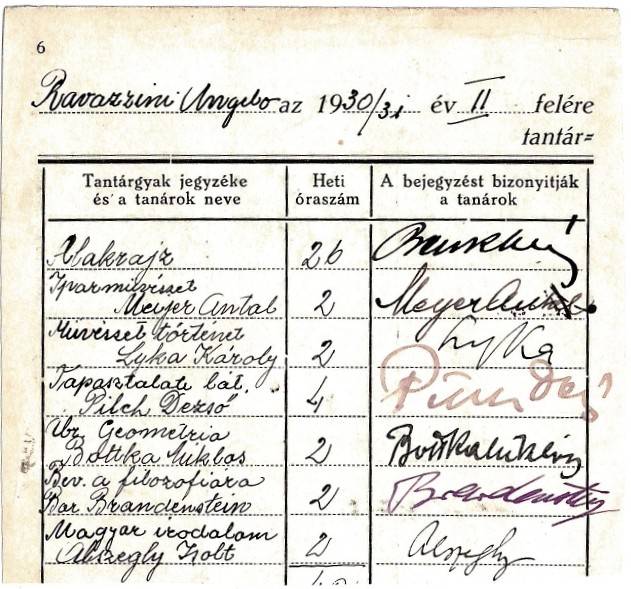 6
Ravazzini Angelo az 1930/31 év II felére
tantár=
Tantárgyak jegyzéke
és a tanárok neve
Heti
óraszám
A bejegyzést bizonyitják
a tanárok
Alakrajz 26
Iparművészet
Meyer Antal 2 Meyer Antal
Művészet történet
Lyka Károly 2 Lyka
Tapasztalati lát.
Pilch Dezső 4
Ábr. Geometria
Bottka Miklós 2 Bottka Miklós
Bev. a filozofiára
Bar Brandenstein 2 Brandenstein
Magyar irodalom
Alszegly Zsolt 2 Alszeghy